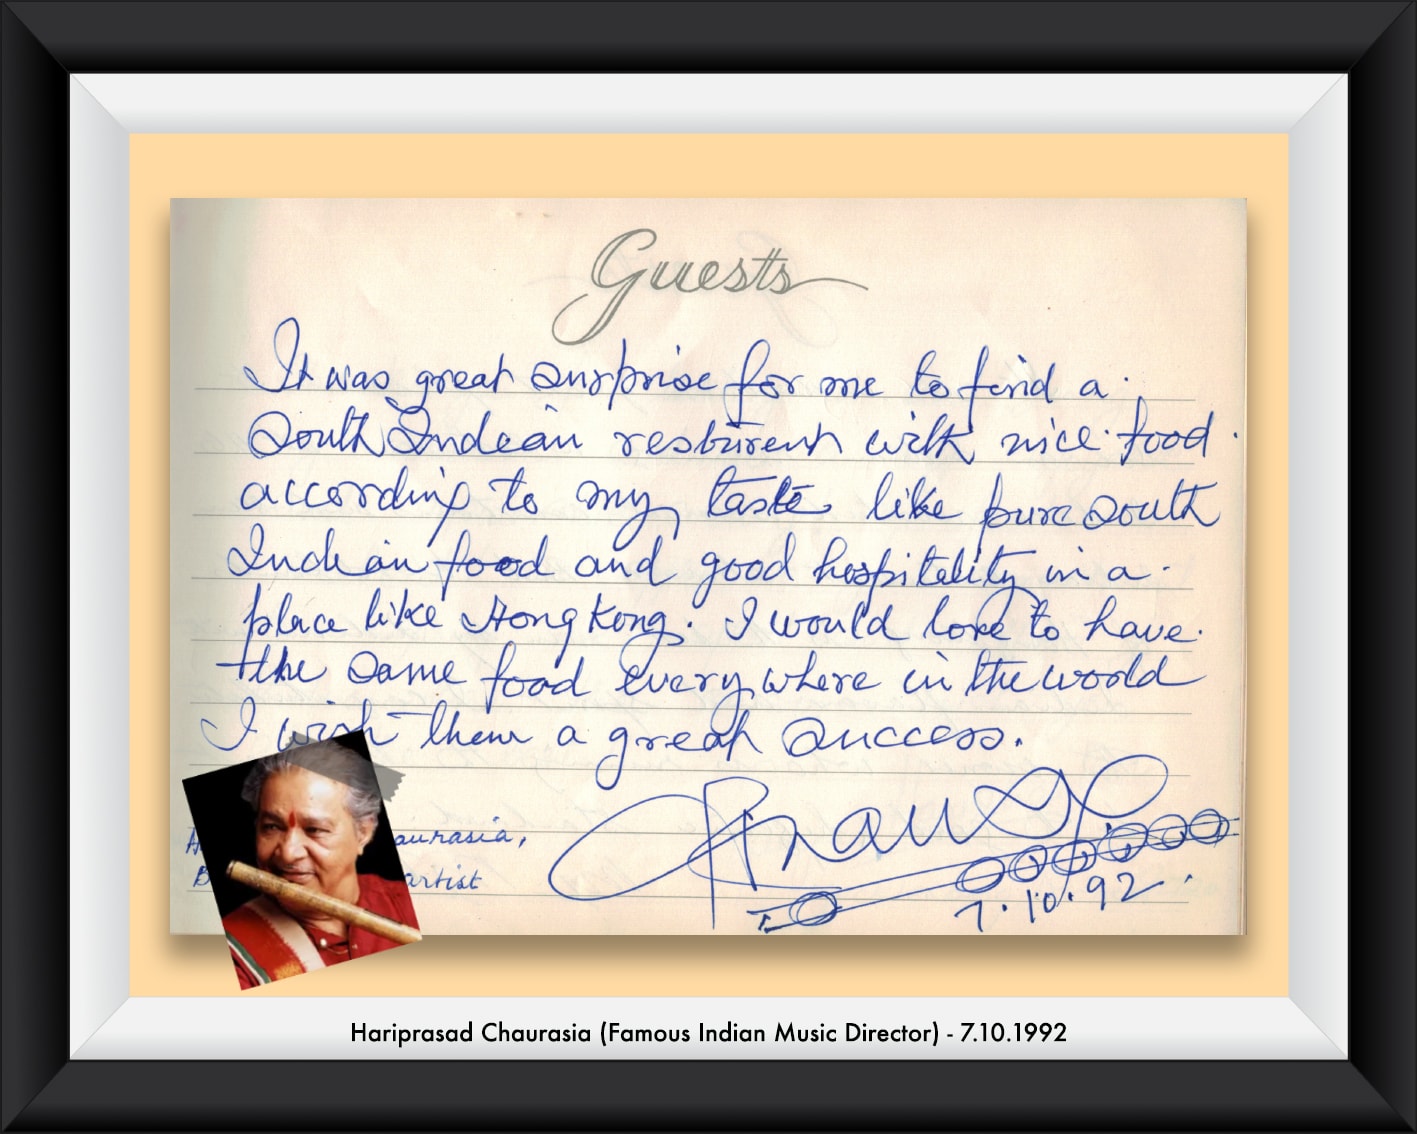 Guests
It was great surprise for me to find a
South Indian resturent with nice food
according to my taste like pure South
Indian food and good hospitality in a
place like Hong Kong. I would love to have
the same food everywhere in the world
I wish them a great success.
aurasia,
artist
7.10.92
Hariprasad Chaurasia (Famous Indian Music Director) - 7.10.1992